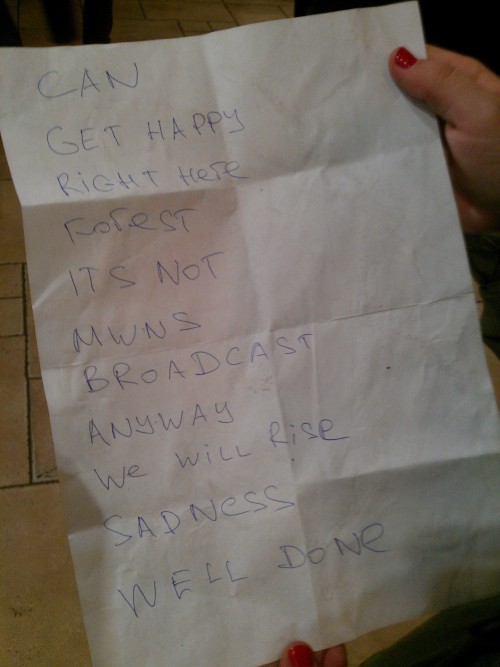 CAN
GET HAPPY
RiGHT HeRe
FoResT
ITS NOT
MWNS
BROADCAST
ANYWAY
We WiLL RiSe
SADNeSS
WELL DoNe